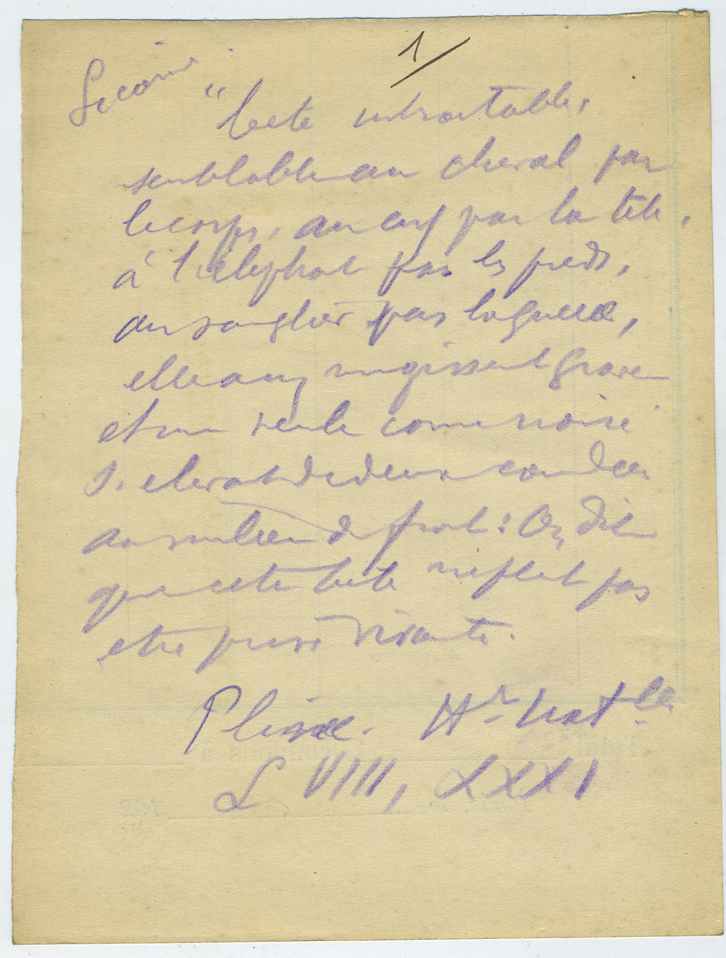 1
Licorne
"bete intraitable,
semblable au cheval par
le corps, au cerf par la tete,
à l'elephant par les pieds,
au sanglier par la queue,
elle a un mugissement grave
et une seule corne noire
s'elevant de deux coudées
au milieu du front: On dit
que cette bete ne peut pas
etre prise vivante.
Pline. Hre Natlle
L VIII, XXXI